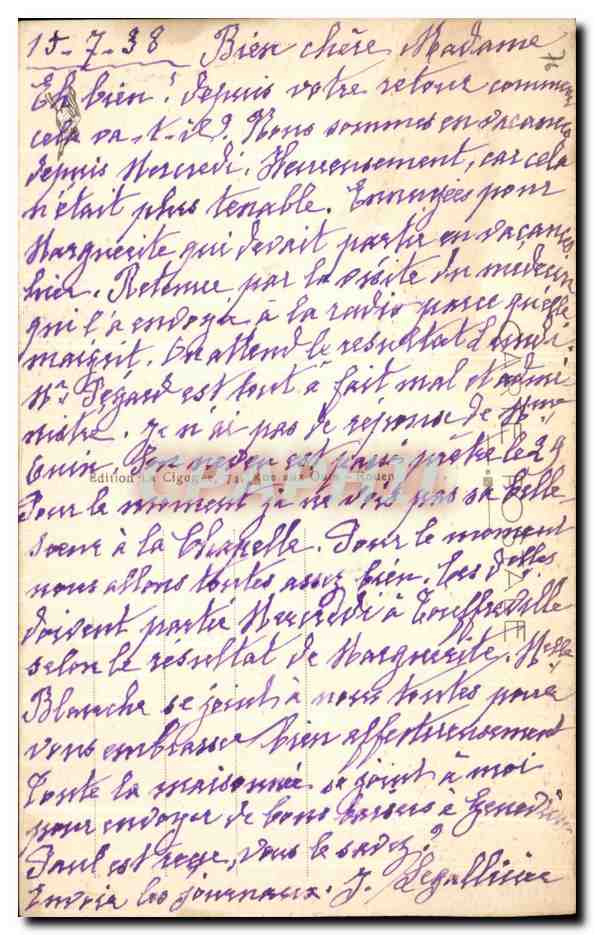 15-7-38 Bien chère Madame
Eh bien! depuis votre retour comment
cela va-t-il? Nous sommes en vacances
depuis Mercredi. Heureusement, car cela
n'était plus tenable. Ennuyées pour
Marguerite qui devait partir en vacances
hier. Retenue par la visite du médecin
qui l'a envoyée à la radio parce qu'elle
maigrit. On attend le résultat Lundi.
Mr Pégard est tout à fait mal et admi
nistré. Je n'ai pas de réponse de Mme
Guin. Son neveu est pair prêtre le 29
Edition La Cigogne, 74, Rue aux Ours - Rouen
CPARAMA
Pour le moment je ne vois pas sa belle
soeur à la Chapelle. Pour le moment
nous allons toutes assez bien. Les delles
doivent partir Mercredi à Touffreville
selon le résultat de Marguerite. Melle
Blanche se joint à nous toutes pour
vous embrasser bien affectueusement
Toute la maisonnée se joint à moi
pour envoyer de bons baisers à
Paul est reçu, vous le savez?
Envoie les journaux. J. Legallicier
CARTE POSTALE